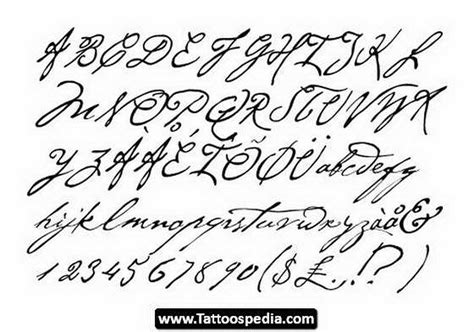 A B C D E F G H I J K L
M N O P Q R S T U V W X
Y Z À Å É Î Õ Ü a b c d e f g
h i j k l m n o p q r s t u v w x y z à å &
1 2 3 4 5 6 7 8 9 0 ( $ £ . , ! ? )
www.Tattoospedia.com